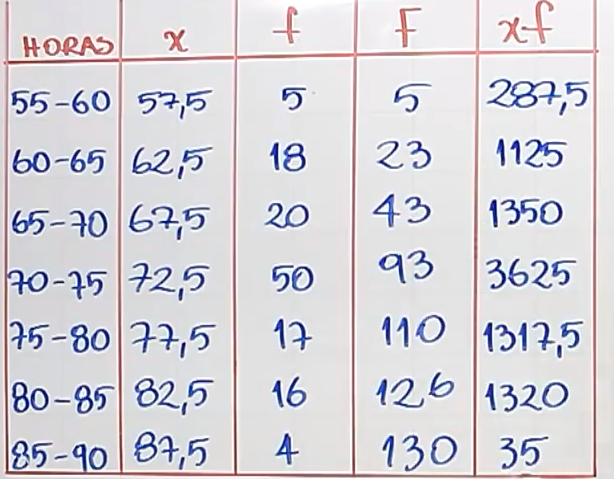 HORAS x f F xf
55-60 57,5 5 5 287,5
60-65 62,5 18 23 1125
65-70 67,5 20 43 1350
70-75 72,5 50 93 3625
75-80 77,5 17 110 1317,5
80-85 82,5 16 126 1320
85-90 87,5 4 130 35